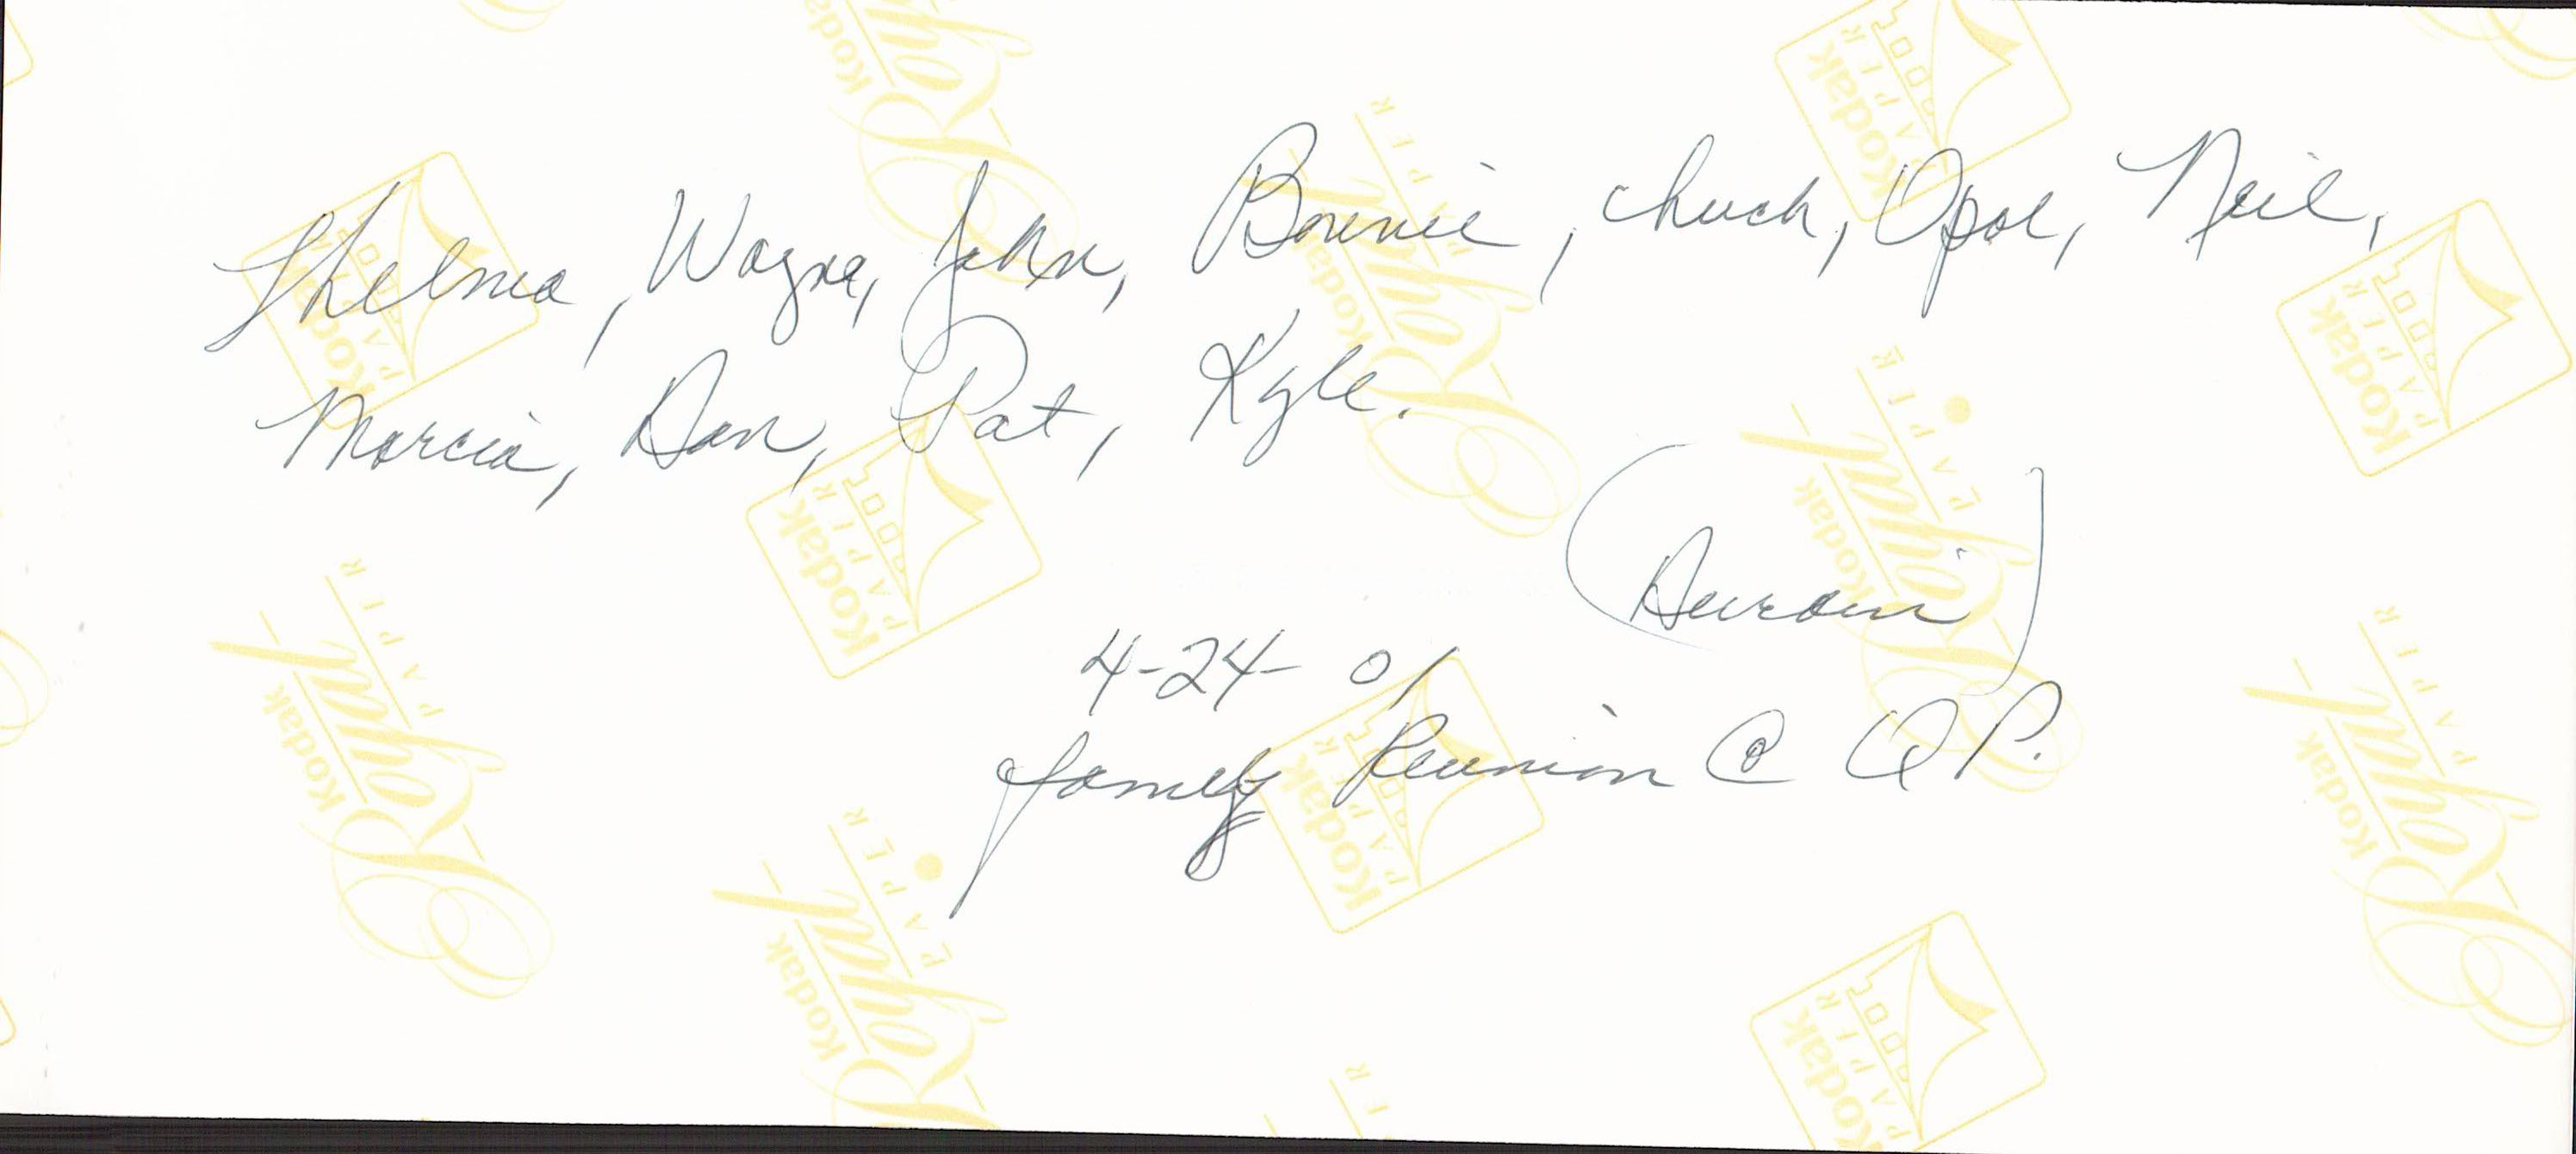 Thelma, Wayne, John, Bonnie, Chuck, Opal, Neil,
Marcia, Dan, Pat, Kyle.
4-24-01
family Reunion @ Q P.
Kodak
Royal
PAPER
Kodak
PAPIR